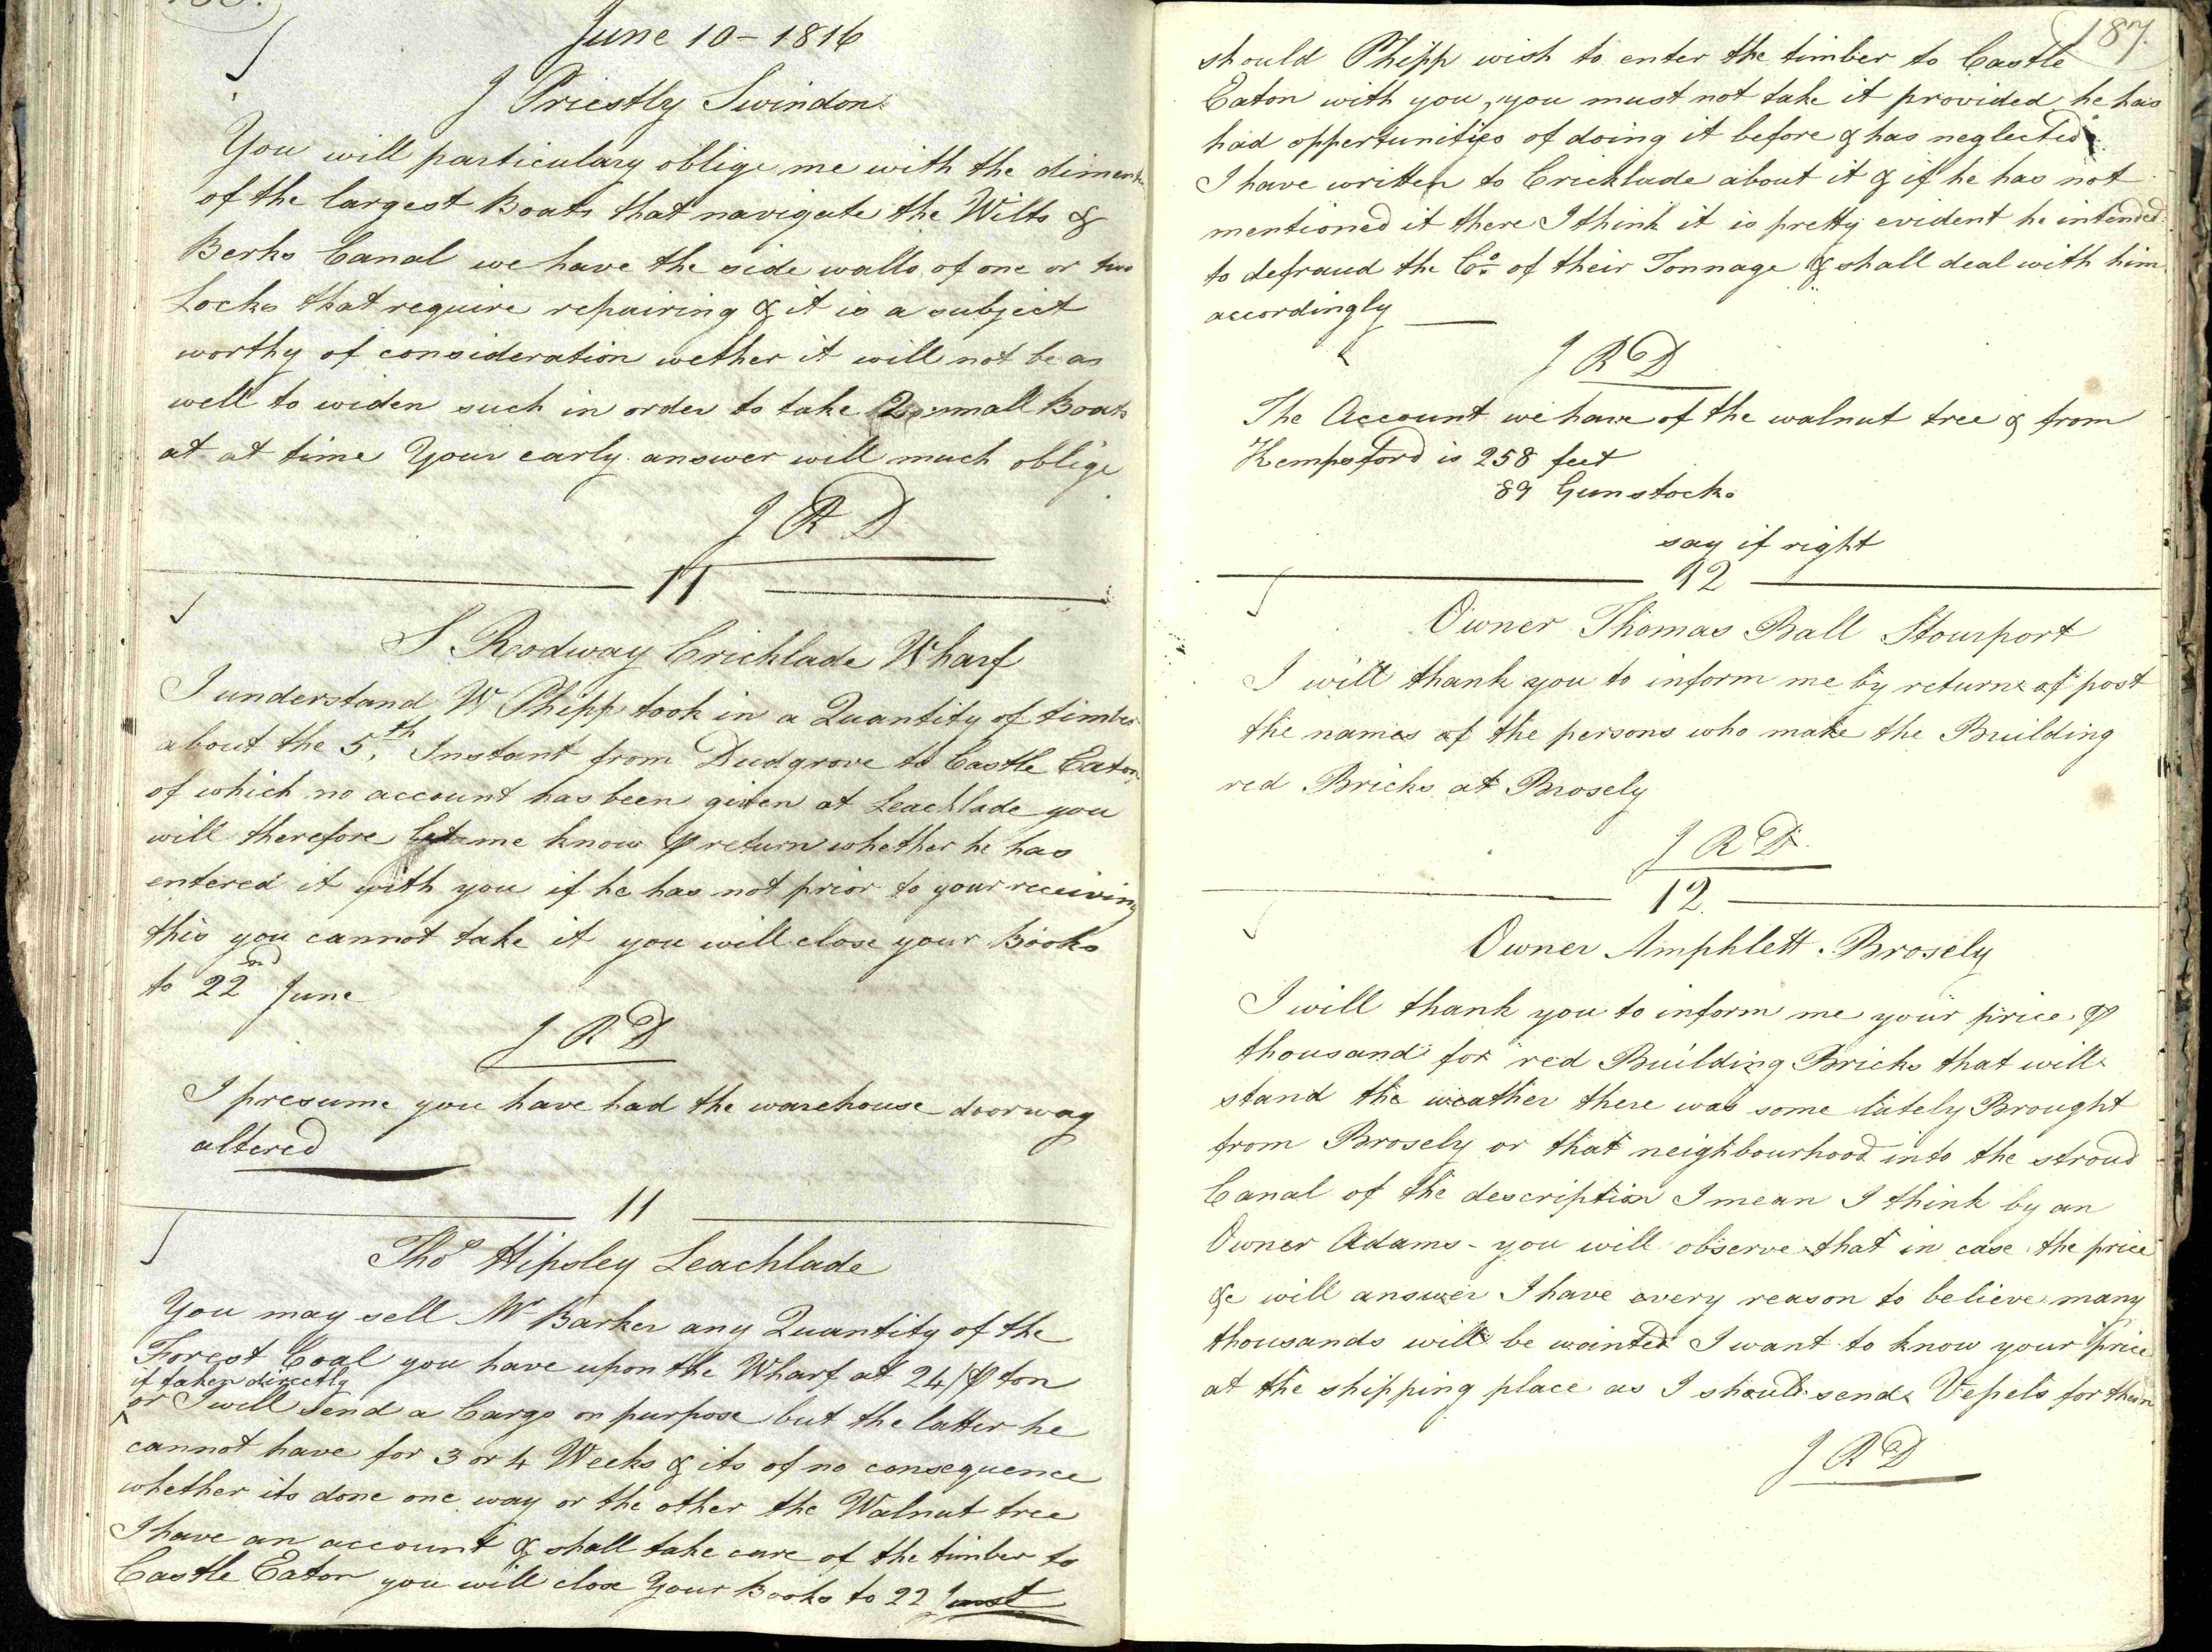 June 10 - 1816
J Priestly Swindon
You will particulary oblige me with the
of the largest Boats that navigate the Wilts &
Berks Canal we have the side walls of one or two
Locks that require repairing & it is a subject
worthy of consideration wether it will not be as
well to widen such in order to take 2 small Boats
at at time Your early answer will much oblige
J R D
11
S Rodway Cricklade Wharf
I understand W Phipp took in a Quantity of timber
about the 5th Instant from Dudgrove to Castle Eaton
of which no account has been given at Leachlade you
will therefore let me know ⅌ return whether he has
entered it with you if he has not prior to your receiving
this you cannot take it you will close your Books
to 22nd June
J R D
I presume you have had the warehouse doorway
altered
11
Thos Hipsley Leachlade
You may sell Mr Barker any Quantity of the
Forest Coal you have upon the Wharf at 24/ ⅌ ton
if taken directly
or I will send a Cargo on purpose but the latter he
cannot have for 3 or 4 Weeks & its of no consequence
whether its done one way or the other the Walnut tree
I have an account & shall take care of the timber to
Castle Eaton you will close Your Books to 22
187.
should Phipp wish to enter the timber to Castle
Eaton with you, you must not take it provided he has
had oppertunities of doing it before & has neglected
I have written to Cricklade about it & if he has not
mentioned it there I think it is pretty evident he intended
to defraud the Co. of their Tonnage & shall deal with him
accordingly
J R D
The Account we have of the walnut tree & from
Kempsford is 258 feet
89 Gunstocks
say if right
12
Owner Thomas Ball Stourport
I will thank you to inform me by return of post
the names of the persons who make the Building
red Bricks at Brosely
J R D
12
Owner Amphlett Brosely
I will thank you to inform me your price ⅌
thousand for red Building Bricks that will
stand the weather there was some lately Brought
from Brosely or that neighbourhood into the stroud
Canal of the description I mean I think by an
Owner Adams - you will observe that in case the price
&c will answer I have every reason to believe many
thousands will be wanted I want to know your Price
at the shipping place as I should send Vessels for them
J R D